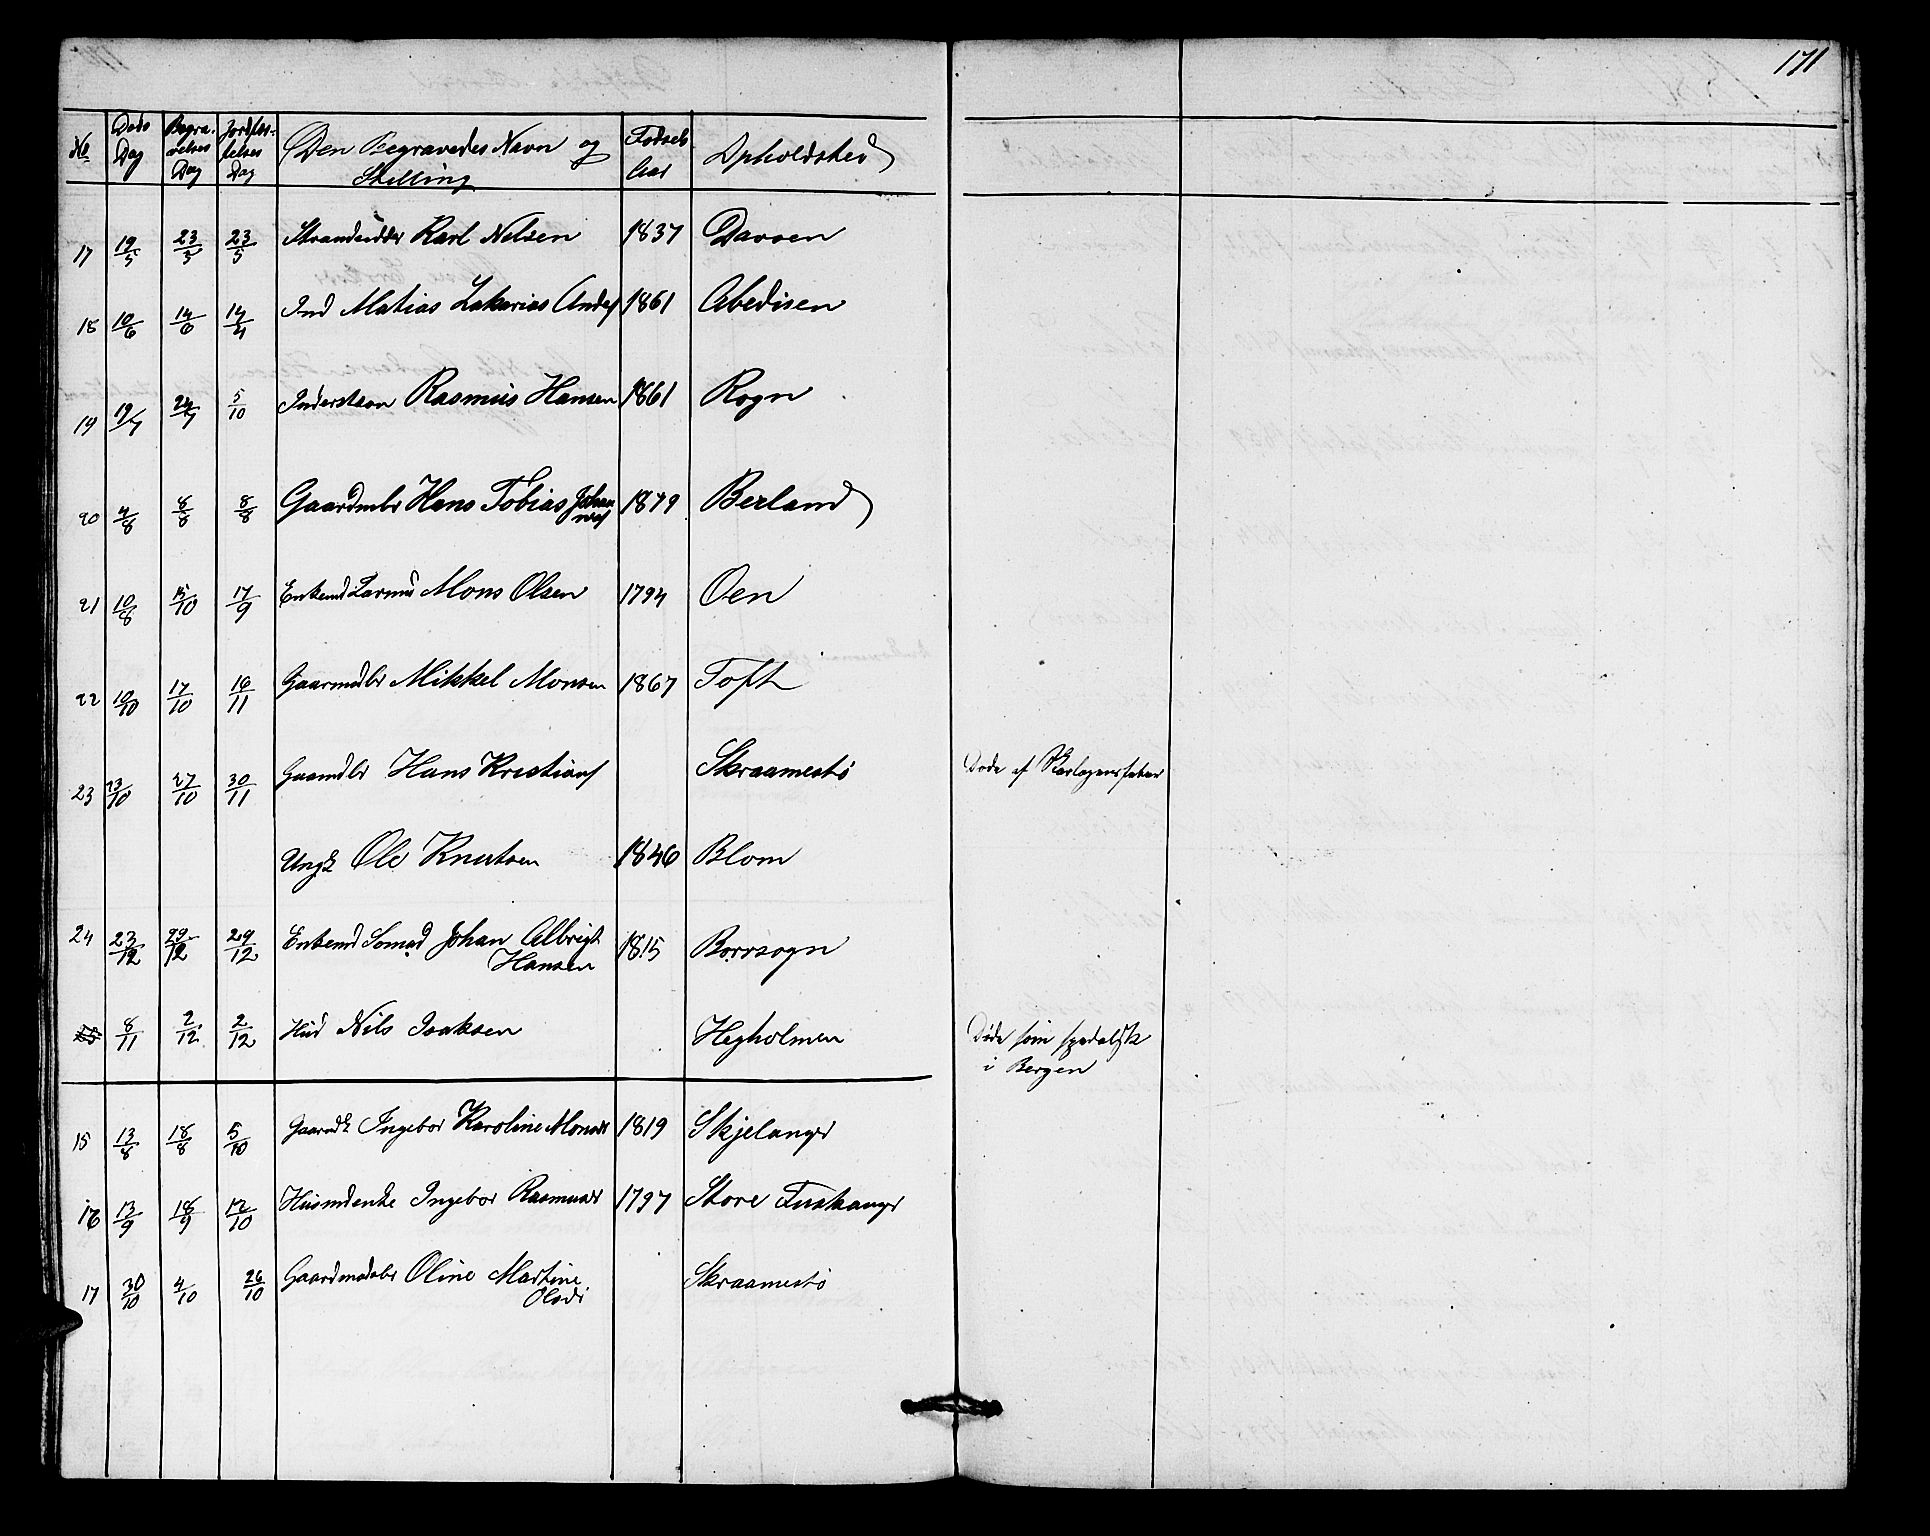 171
No Døds Dag Begra- velses Dag Jordfæs- telses Dag Den Begravedes Navn og Stilling Fødsels Aar Opholdsted
17 19/5 23/5 23/5 Strandsidder Karl Nelsen 1837 Davøen
18 10/6 14/6 Ind Matias Zakarias Anders 1861 Abedisen
19 19/7 24/7 5/10 Inderstsøn Rasmus Hansen 1861 Rogn
20 4/8 8/8 8/8 Gaardmbr Hans Tobias Johan nes 1879 Berland
21 10/8 15/10 17/9 Enkemd Mons Olsen 1794 Oen
22 10/10 17/10 16/11 Gaarmdbr Mikkel Monsen 1867 Toft
23 23/10 27/10 30/11 Gaamdbr Hans Kristians Skraamestø Døde af Skarlagensfeber
Ungk Ole Knutsen 1846 Blom
24 23/12 29/12 29/12 Enkemd Johan Albrigt 1815 Borrsogn
Hansen
25 8/11 2/12 2/12 Hud Nils Isaksen Hegholmen Døde som spedalsk
i Bergen
15 13/8 18/8 5/10 Gaardk Ingebor Karoline Monsdr 1819 Skjelanger
16 13/9 18/9 12/10 Husmdenke Ingebor Rasmusdr 1797 Store Turkanger
17 30/10 4/10 26/10 Gaardmdsbr Oline Martine Skraamestø
Olsdr